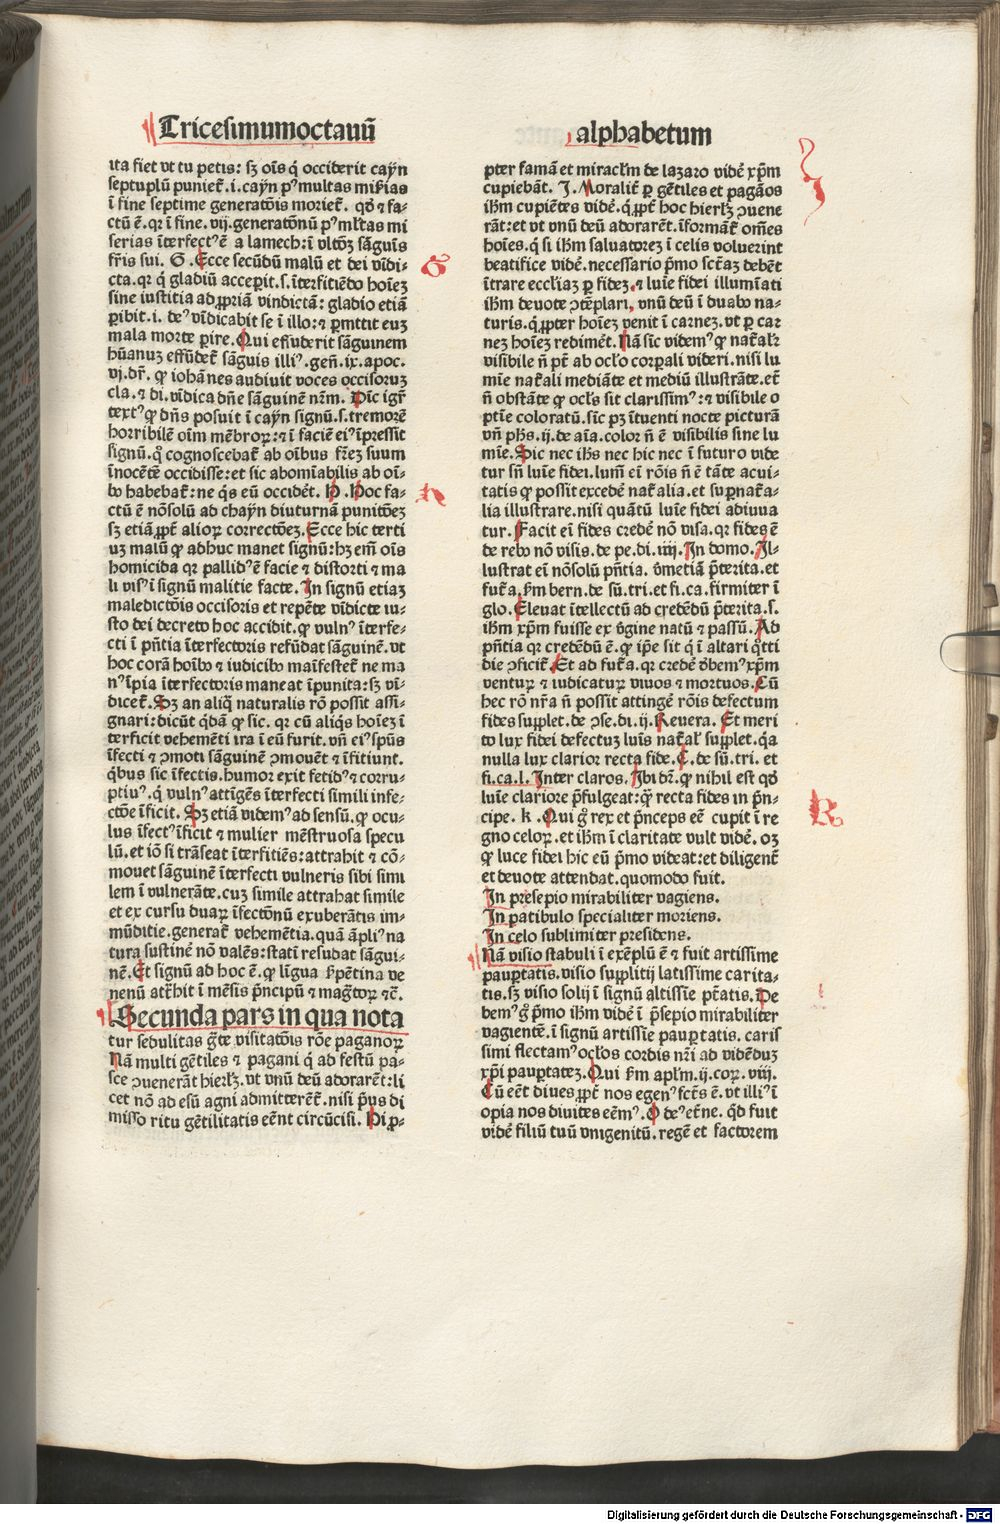 Tricesimumoctauū alphabetum
ita fiet vt tu petis: sʒ oīs q̇ occiderit cayn
septuplū punietᷣ. i. cayn pꝰ multas mi&#x27;ias
ī fine septime generatōis morietᷣ. qð ⁊ fa-
ctū ē. qꝛ ī fine. vij. generatōnū pꝰ ml&#x27;tas mi
serias īterfectꝰ ē a lamech: ī vltōꝫ sāguīs
fr̄is sui. G. Ecce secūdū malū et dei vīdi-
cta. qꝛ q̇ gladiū acceperit. s. īterfitiēdo hoīeꝫ
sine iustitia ad ꝓpriā vindictā: gladio etiā
ꝑibit. i. deꝰ vīdicabit se ī illo: ⁊ ꝑmttit euꝫ
mala morte ꝑire. Qui effuderit sāguinem
hūanuꝫ effūdetᷣ sāguis illiꝰ. geñ. ix. apoc.
vj. dr̄. ꝙ iohānes audiuit voces occisoruꝫ
cla. ⁊ di. vīdica dn̄e sāguinē nr̄m. Dīc igr̄
textꝰ ꝙ dn̄s posuit ī cayn signū. s. tremorē
horribilē oīm mēbroꝝ: ⁊ ī faciē eiꝰ īpressit
signū. q̊ cognoscebatᷣ ab oībus fr̄eꝫ suum
īnocētē occidisse: et sic abomīabilis ab oī-
bꝰ habebatᷣ: ne q̇s eū occidēt. H. Hoc fa-
ctū ē nōsolū ad chayn diuturnā punitōeꝫ
sʒ etiā ꝓpt&#x27; alioꝝ correctōeꝫ. Ecce hic terti
uꝫ malū ꝙ adhuc manet signū: hʒ em̄ oīs
homicida qꝛ pallidꝰ ē facie ⁊ distorti ⁊ ma
li visꝰ ī signū malitie facte. In signū etiaꝫ
maledictōis occisoris et repēte vīdicte iu-
sto dei decreto hoc accidit. ꝙ vulnꝰ īterfe-
cti ī pn̄tia īterfectoris refūdat sāguinē. vt
hoc corā hoībꝰ ⁊ iudicibꝰ maīfestetᷣ ne ma
nꝰ īpia īterfectoris maneat īpunita: sʒ vī-
dicetᷣ. Sʒ an aliq̇ naturalis rō possit assi-
gnari: dicūt q̇dā ꝙ sic. qꝛ cū aliq̇s hoīeꝫ ī
terficit vehemēti ira ī eū furit. vñ eiꝰ spūs
īfecti ⁊ ꝯmoti sāguinē ꝯmouēt ⁊ īfitiunt.
q̇bus sic īfectis. humor exit fetidꝰ ⁊ corru-
ptiuꝰ. q̇ vulnꝰ attīgēs īterfecti simili infe-
ctōe īficit. Sʒ etiā videmꝰ ad sensū. ꝙ ocu-
lus īfectꝰ īficit ⁊ mulier mēstruosa specu
lū. et iō si trāseat īterfitiēs: attrahit ⁊ cō-
mouet sāguinē īterfecti vulneris sibi simi
lem ī vulnerāte. cuꝫ simile attrahat simile
et ex cursu duaꝝ īfectōnū exuberātis im-
mūditie. generatᷣ vehemētia. quā āpliꝰ na
tura sustinē nō valēs: statī resudat sāgui-
nē. Et signū ad hoc ē. ꝙ līgua s̄pētina ve
nenū atrᷣhit ī mēsis pꝛ̄ncipū ⁊ mag̃toꝝ ⁊c̄.
Secunda pars in qua nota
tur sedulitas g̃te visitatōis rōe paganoꝝ
Nā multi gētiles ⁊ pagani q̇ ad festū pa-
sce ꝯuenerāt hierl&#x27;ʒ. vt vnū deū adorarēt: li
cet nō ad esū agni admitterētᷣ. nisi p̄us di
misso ritu gētilitatis eēnt circūcisi. Hi ꝓ-
pter famā et miracl&#x27;m de lazaro vidē xp̄m
cupiebāt. I. Moralitᷣ ꝑ gētiles et pagāos
ih̄m cupiētes vidē. q̇ ꝓpt&#x27; hoc hierl&#x27;ʒ ꝯuene
rāt: et vt vnū deū adorarēt. īformātᷣ om̄es
hoīes. q̇ si ih̄m saluatoreꝫ ī celis voluerint
beatifice vidē. necessario pꝛ̄mo sct̄aꝫ debēt
ītrare eccl&#x27;iaꝫ ꝑ fideꝫ. ⁊ luīe fidei illumīati
ih̄m deuote ꝯtēplari, vnū deū ī duabꝰ na-
turis. q̇ ꝓpter hoīeꝫ venit ī carneꝫ. vt ꝑ car
neꝫ hoīeꝫ redimēt. Nā sic videmꝰ ꝙ nat&#x27;alr̄
visibile n̄ pt̄ ab ocl&#x27;o corꝑali videri. nisi lu
mīe nat&#x27;ali mediāte et mediū illustrāte. et̄
n̄ obstāte ꝙ ocl&#x27;s sit clarissimꝰ: ⁊ visibile o
ptīe coloratū. sic pʒ ītuenti nocte picturā
vñ ph̄s. ij. de aīa. color n̄ ē visibilis sine lu
mīe. Sic nec ih̄s nec hic nec ī futuro vide
tur sn̄ luīe fidei. lum̄ ei̇ rōis n̄ ē tāte acui-
tatis ꝙ possit excedē nat&#x27;alia. et suꝑnat&#x27;a-
lia illustrare. nisi quātū luīe fidei adiuua
tur. Facit ei̇ fides credē nō visa. qꝛ fides ē
de rebꝰ nō visis. de pe. di. iiij. In domo. Il-
lustrat ei̇ nōsolū pn̄tia. v̊metiā p̄terita. et
fut&#x27;a. s̄m bern. de sū. tri. et fi. ca. firmiter ī
glo. Eleuat ītellectū ad credēdū p̄terita. s.
ih̄m xp̄m fuisse ex v̊gine natū ⁊ passū. Ad
pn̄tia qꝛ credēdū ē. ꝙ ip̄e sit q̇ ī altari q̊tti
die ꝯficitᷣ. Et ad fut&#x27;a. qꝛ credē ðbemꝰ xp̄m
venturꝝ ⁊ iudicaturꝝ viuos ⁊ mortuos. Cū
hec rō nr̄a n̄ possit attingē rōis defectum
fides supplet. de ꝯse. di. ij. Reuera. Et meri
to lux fidei defectuꝫ luīs nat&#x27;al&#x27; supplet. q̇a
nulla lux clarior recta fide. C. de sū. tri. et
fi. ca. l. Inter claros. Ibi dr̄. ꝙ nihil est qð
luīe clariore p̄fulgeat: q̊ recta fides in pꝛ̄n-
cipe. k. Qui g̊ rex et pꝛ̄nceps eē cupit ī re
gno celoꝝ. et ih̄m ī claritate vult vidē. oꝫ
ꝙ luce fidei hic eū pꝛ̄mo videat: et diligentᷣ
et deuote attendat. quomodo fuit.
In presepio mirabiliter vagiens.
In patibulo specialiter moriens.
In celo sublimiter presidens.
Nā visio stabuli ī exēplū ē ⁊ fuit artissime
pauꝑtatis. visio supplitij latissime carita-
tis. sʒ visio solij ī signū altissīe pt̄atis. De
bemꝰ g̊ pꝛ̄mo ih̄m vidē ī p̄sepio mirabiliter
vagientē. ī signū artissīe pauꝑtatis. caris
simi flectamꝰ ocl&#x27;os cordis nr̄i ad vidēduꝫ
xp̄i pauꝑtateꝫ. Qui s̄m apl&#x27;m. ij. coꝝ. viij.
Cū eēt diues ꝓpt&#x27; nos egenꝰ fct̄s ē. vt illiꝰ ī
opia nos diuites eēmꝰ. O deꝰ et̄ne. q̇d fuit
vidē filiū tuū vnigenitū. regē et factorem
G
H
I
K
Digitalisierung gefördert durch die Deutsche Forschungsgemeinschaft - DFG